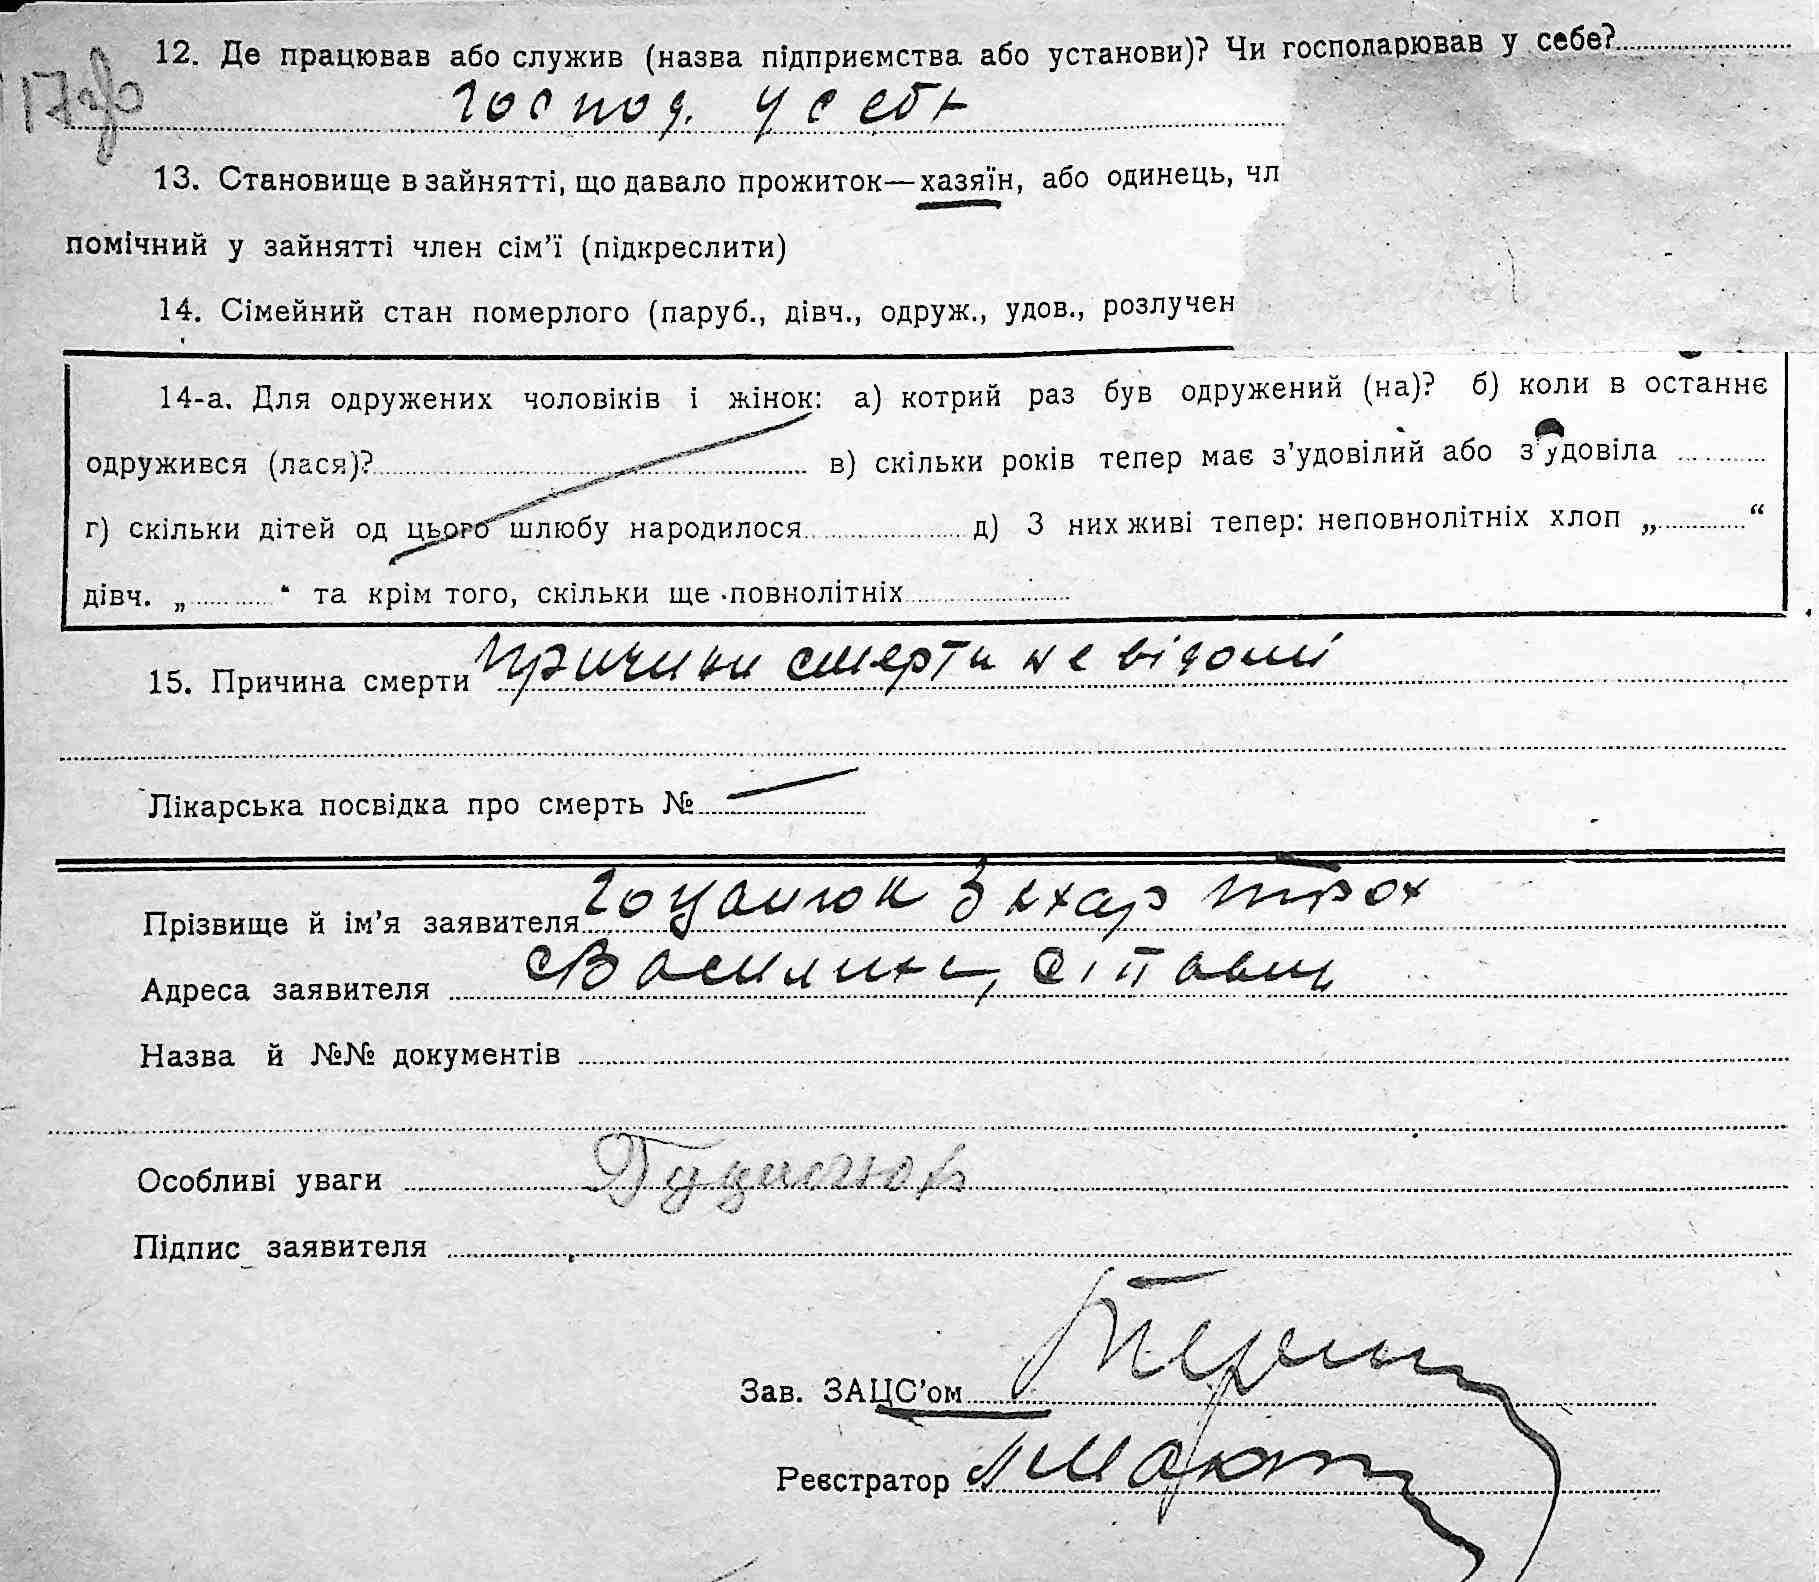 12. Де працював або служив (назва підприємства або установи)? Чи господарював у себе?
Господ. у себе
13. Становище в зайнятті, що давало прожиток—хазяїн, або одинець, чл
помічний у зайнятті член сім’ї (підкреслити)
14. Сімейний стан померлого (паруб., дівч., одруж., удов., розлучен
14-а. Для одружених чоловіків і жінок: а) котрий раз був одружений (на)? б) коли в останнє
одружився (лася)? в) скільки років тепер має з’удовілий або з’удовіла
г) скільки дітей од цього шлюбу народилося д) З них живі тепер: неповнолітніх хлоп „ “
дівч. „ “ та крім того, скільки ще повнолітніх
15. Причина смерти Причини смерти не відомі
Лікарська посвідка про смерть №
Прізвище й ім’я заявителя Захар
Адреса заявителя с
Назва й №№ документів
Особливі уваги
Підпис заявителя
Зав. ЗАЦС’ом
Реєстратор